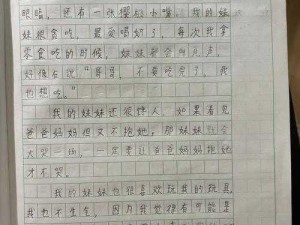 眼睛,还有一张樱桃小嘴。我的妹
妹很贪吃,最爱喝奶了,每次我拿
零食吃的时候,妹妹都会叫几声
好像在说"哥哥,不要吃完了,我
也想吃。"
我的妹妹还很怪人,如果看见
爸爸妈妈但又不抱她,那妹妹就会
大哭一场,一定要让爸爸妈妈抱她
才不哭。
我的妹妹也很喜欢玩我的玩具
我也不生气,因为我觉得有可能是